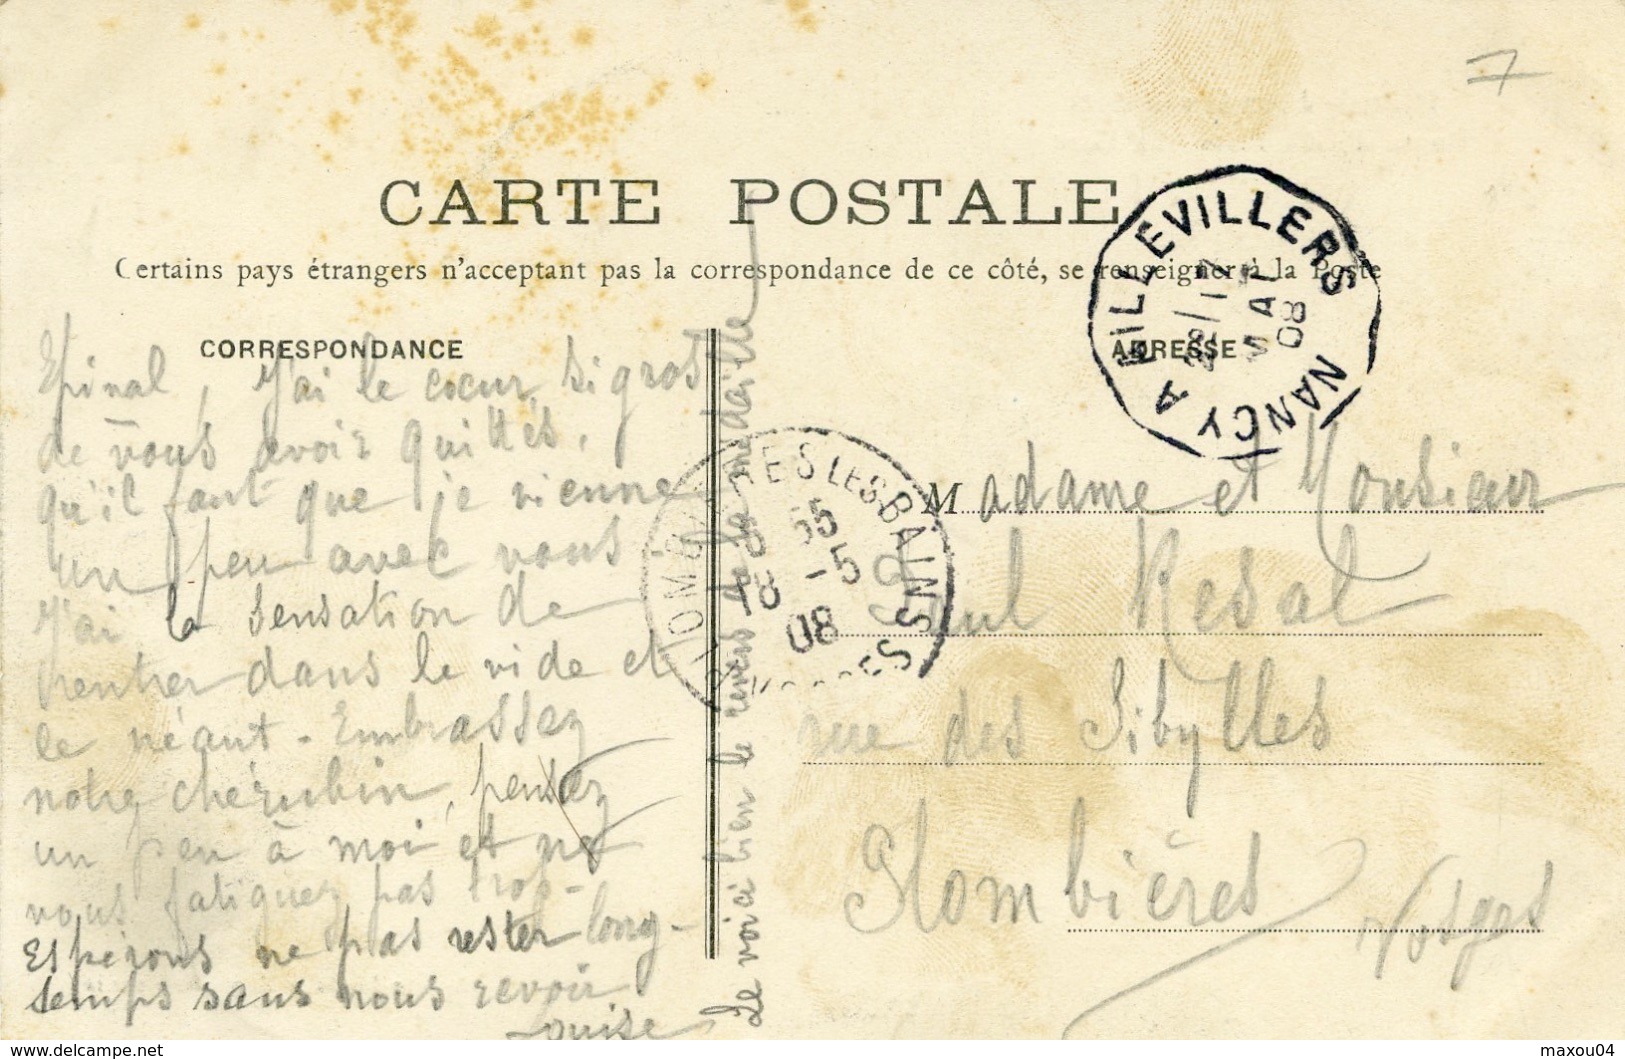 7
CARTE POSTALE
Certains pays étrangers n'acceptant pas la correspondance de ce côté, se renseigner à la Poste
CORRESPONDANCE
ADRESSE
Epinal, J'ai le cœur si gros
de vous avoir quittés,
qu'il faut que je vienne
un peu avec vous.
J'ai la sensation de
rentrer dans le vide et
le néant - Embrassez
notre chérubin, pensez
un peu à moi et ne
vous fatiguez pas trop -
Espérons ne pas rester long-
temps sans nous revoir
Louise
Le voici bien le revers de la médaille
Madame et Monsieur
Paul Resal
rue des Sibylles
Plombières
Vosges
AILLEVILLERS A NANCY
MAI
08
PLOMBIERES LES BAINS
VOSGES
8 55
8 -5
08
delcampe.net
maxou04